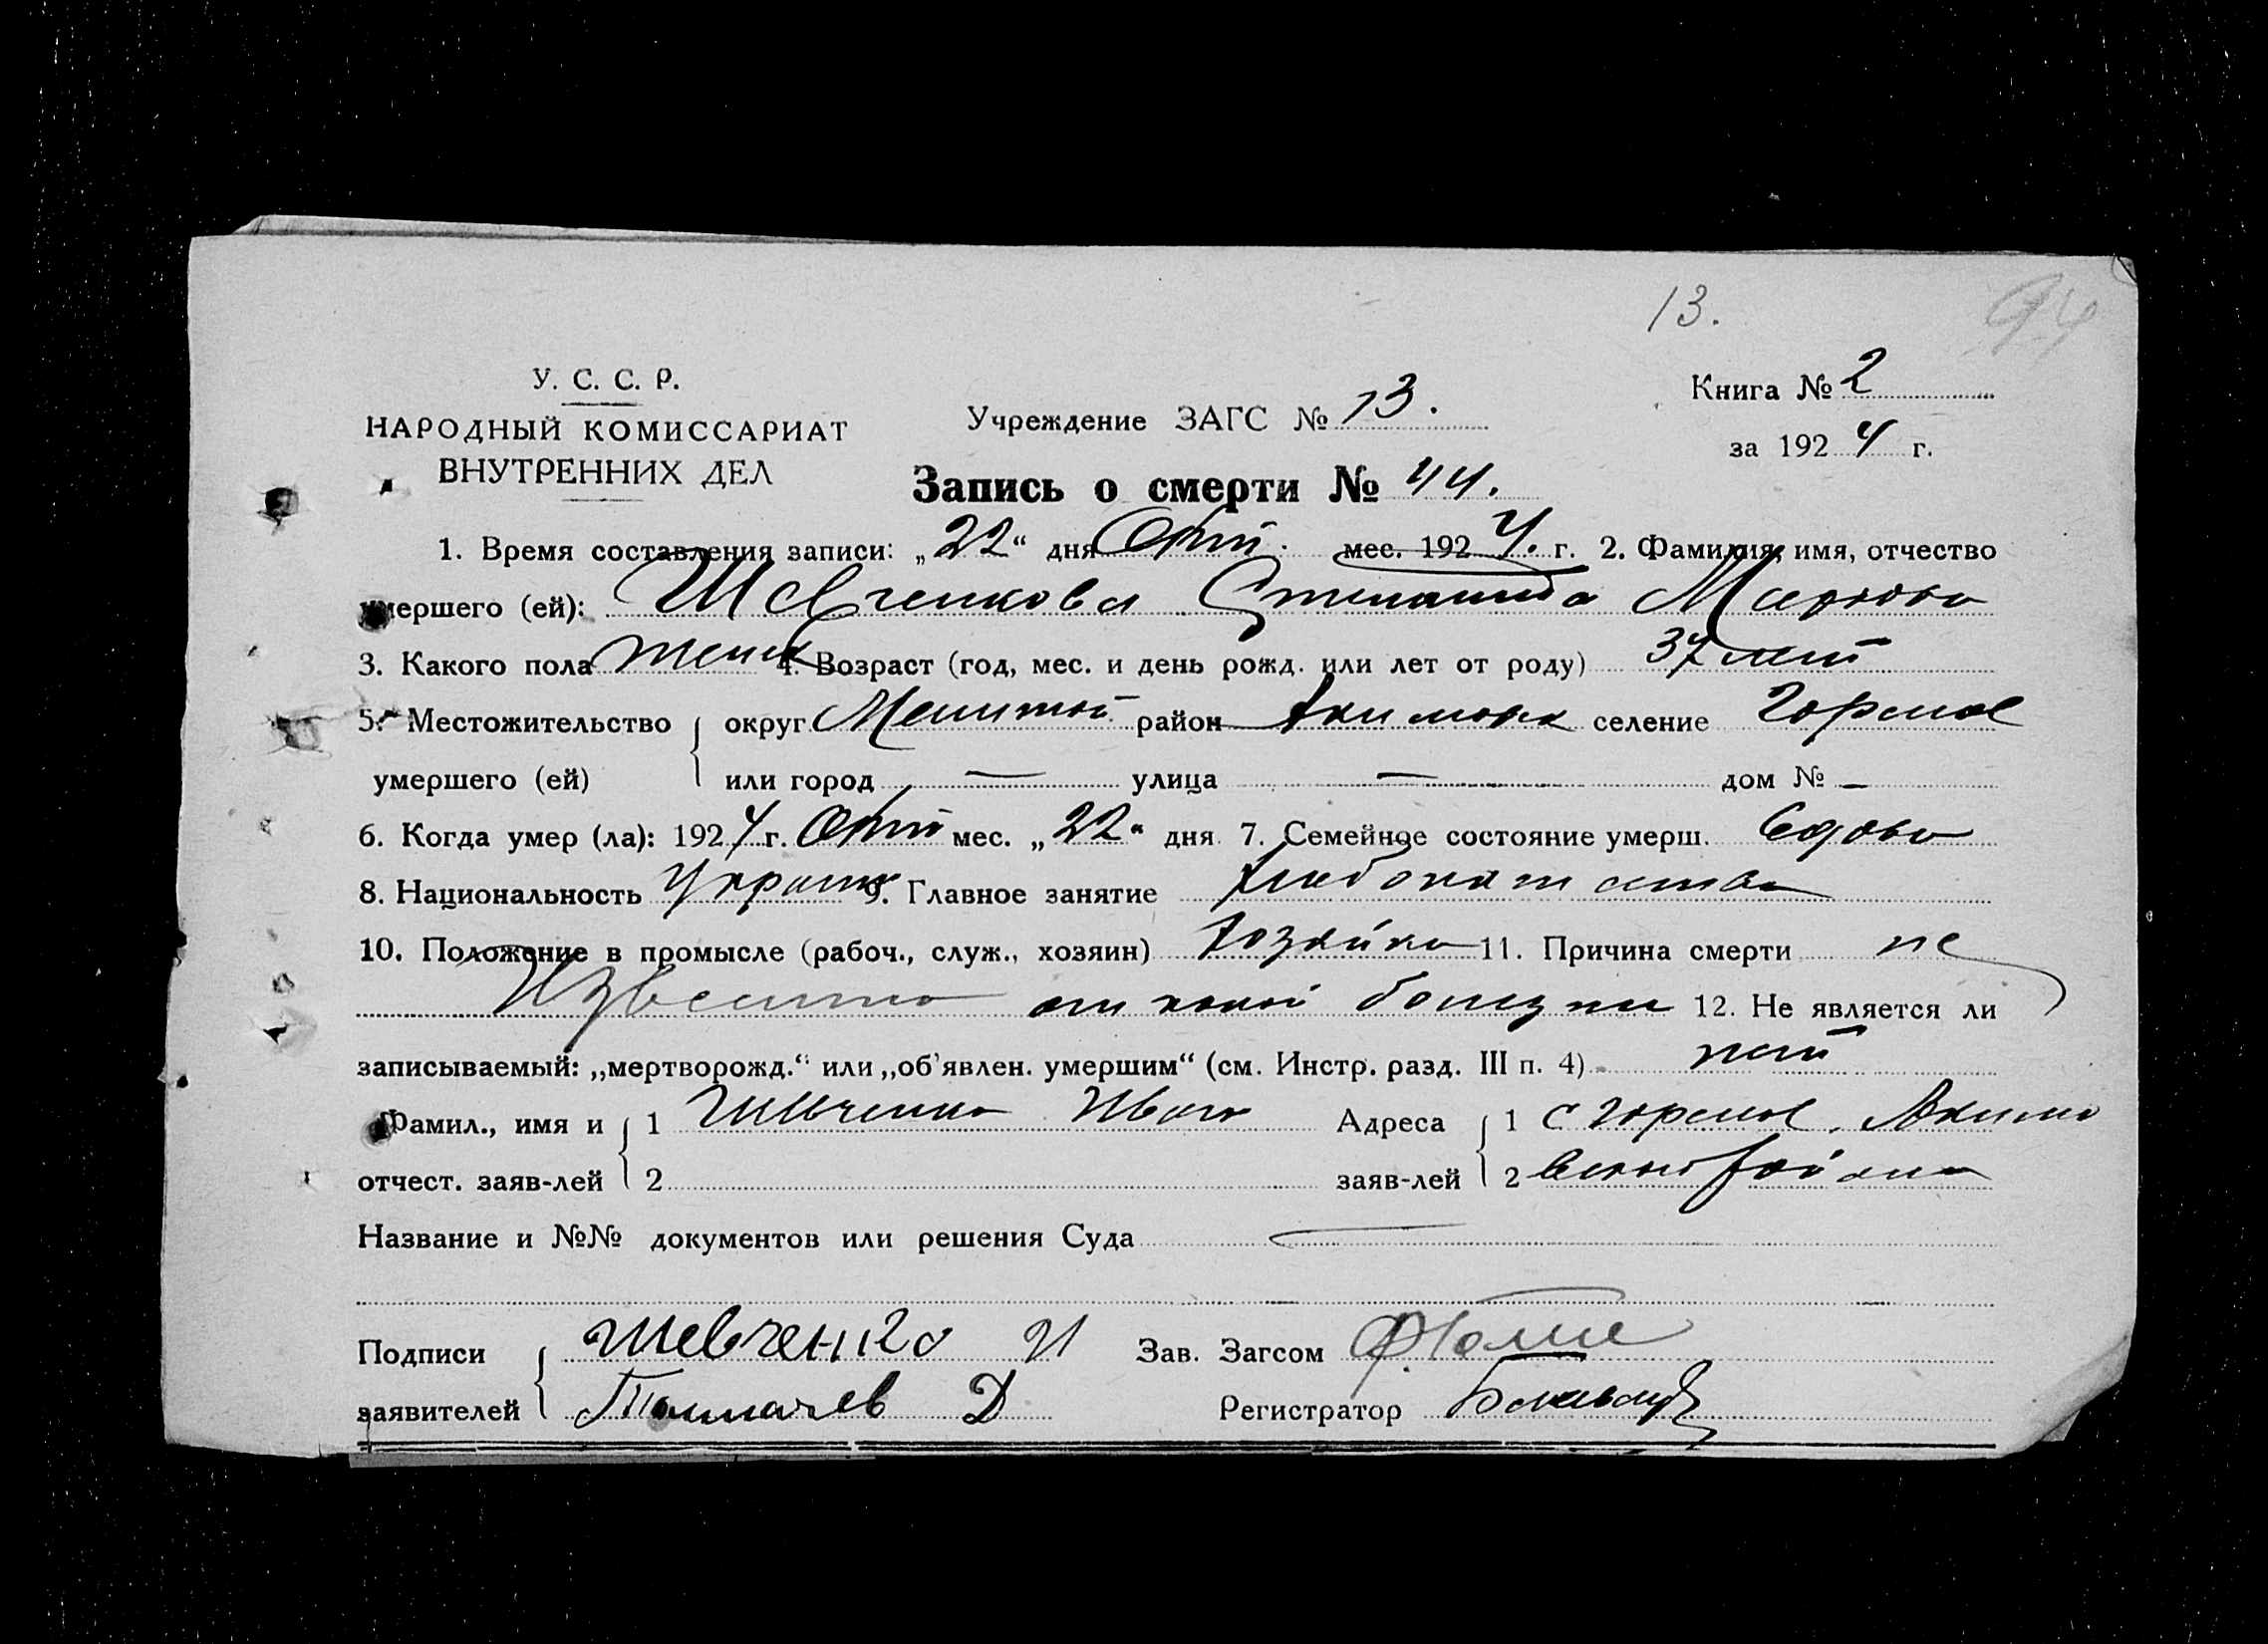 13.
94
У. С. С. Р.
НАРОДНЫЙ КОМИССАРИАТ
ВНУТРЕННИХ ДЕЛ
Учреждение ЗАГС № 13.
Книга № 2
за 1924 г.
Запись о смерти № 44.
1. Время составления записи: „22“ дня Окт. мес. 1924. г. 2. Фамилия, имя, отчество
умершего (ей): Шевченкова Степанида Маркова
3. Какого пола женск 4. Возраст (год, мес. и день рожд. или лет от роду) 37 лет
5. Местожительство округ Мелитоп. район Акимовск селение Горелое
умершего (ей) или город — улица — дом № —
6. Когда умер (ла): 1924 г. Окт мес. „22“ дня 7. Семейное состояние умерш. вдова
8. Национальность Украин 9. Главное занятие хлебопашество
10. Положение в промысле (рабоч., служ., хозяин) хозяйка 11. Причина смерти не
известно от какой болезни 12. Не является ли
записываемый: „мертворожд.“ или „об’явлен. умершим“ (см. Инстр. разд. III п. 4) нет
Фамил., имя и 1 Шевченко Иван Адреса 1 с Горелое, Акимо
отчест. заяв-лей 2 заяв-лей 2 вског района
Название и №№ документов или решения Суда —
Подписи Шевченко И Зав. Загсом
заявителей Толмачев Д Регистратор